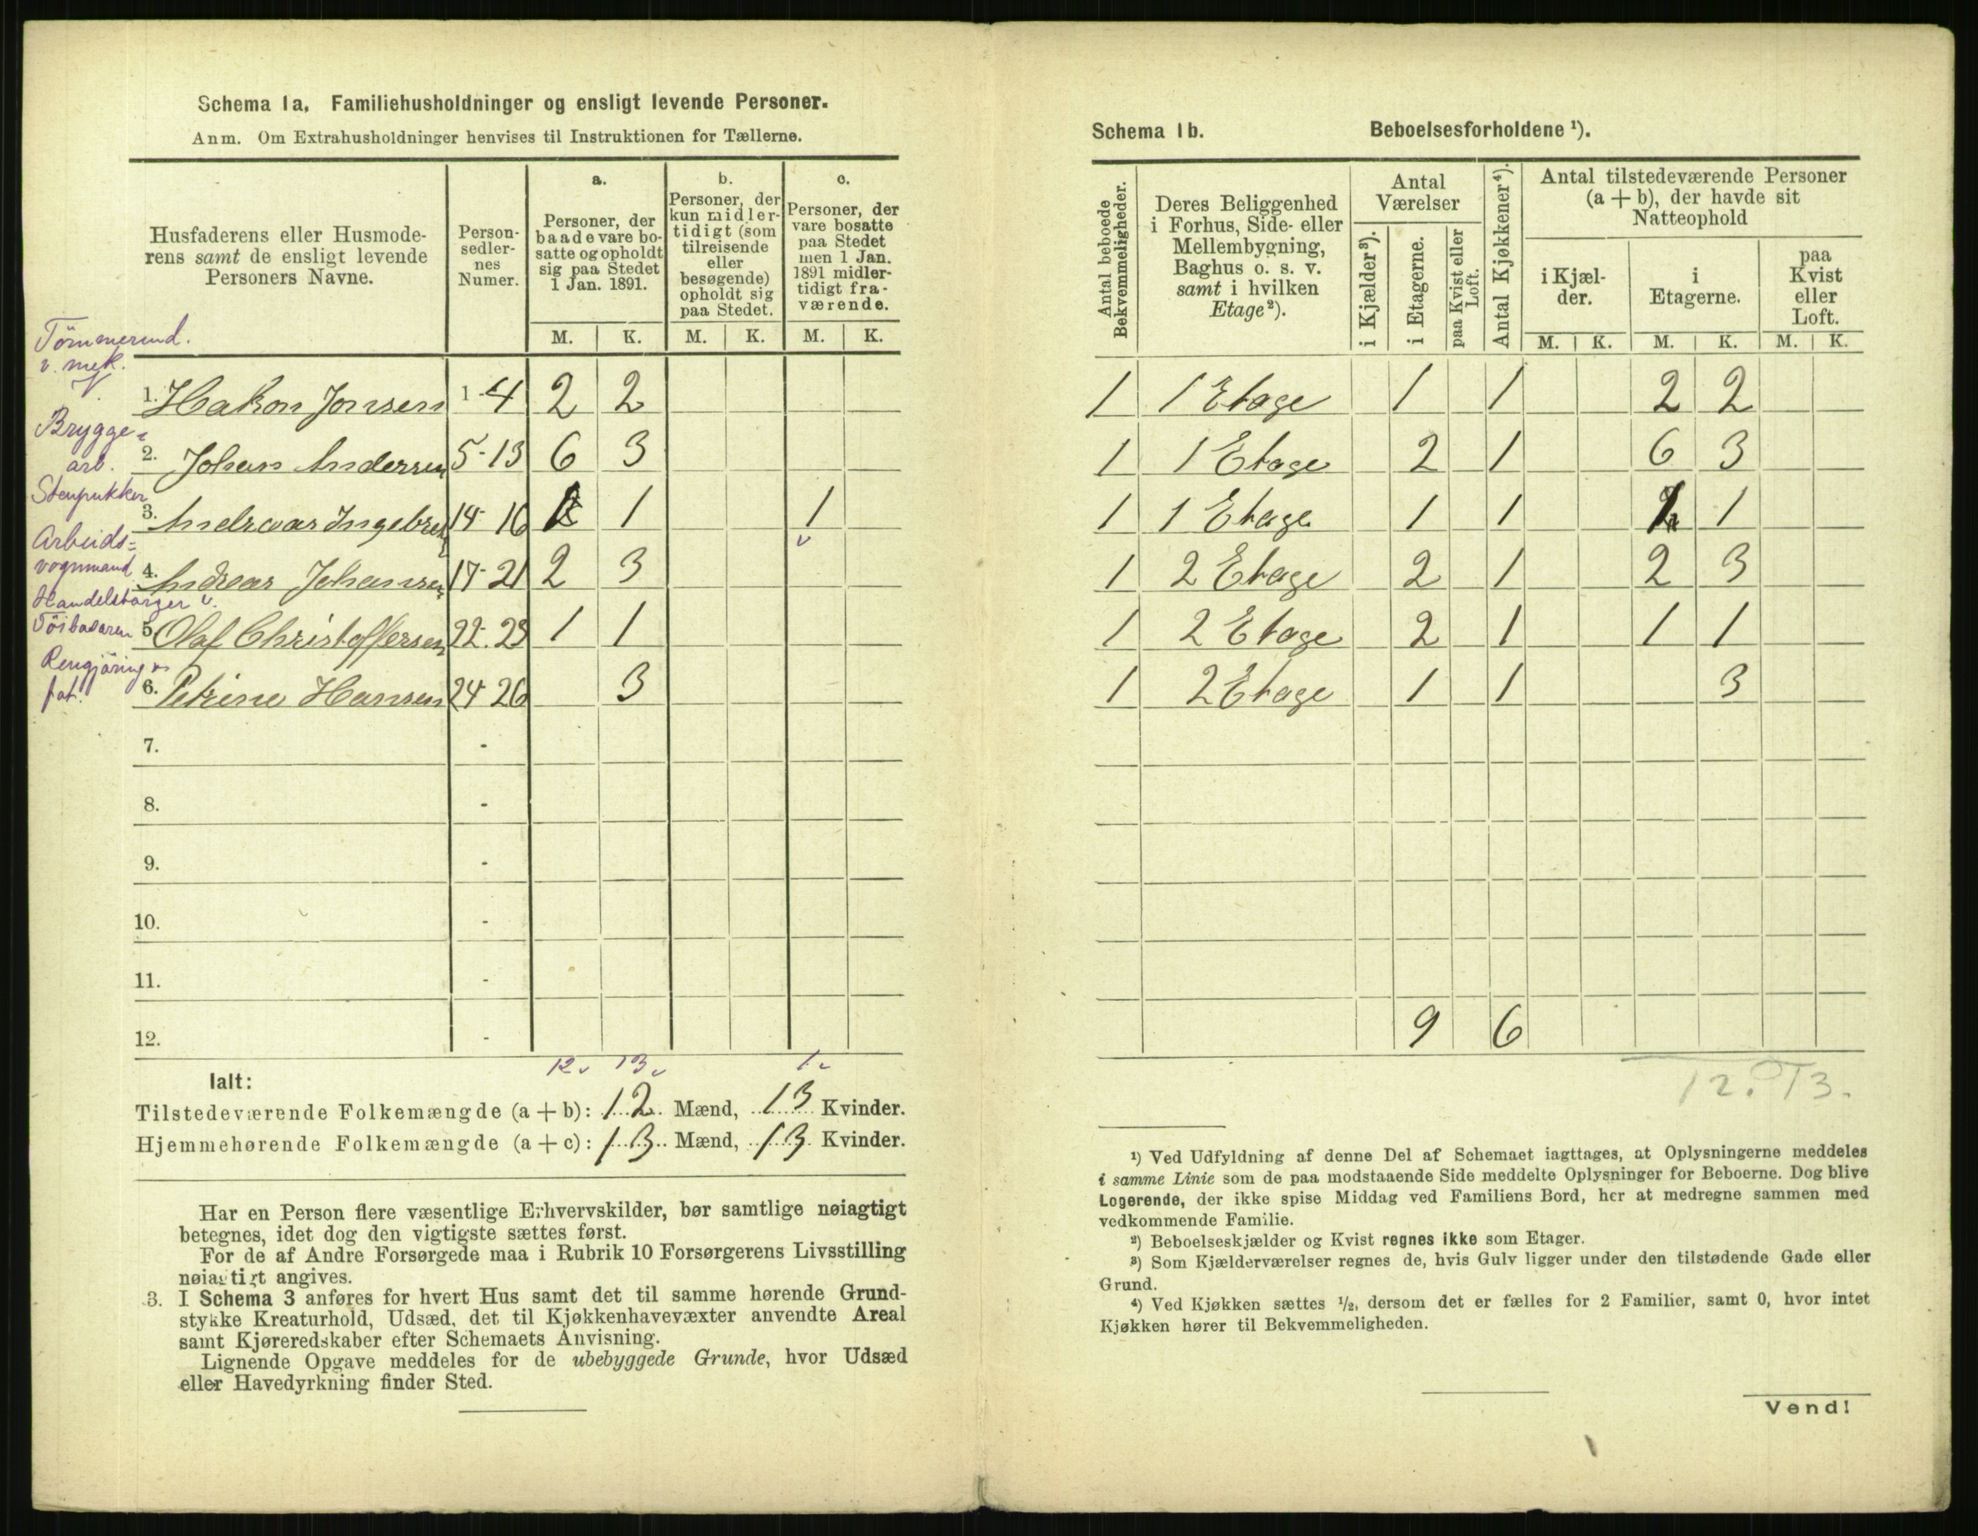 Schema 1a. Familiehusholdninger og ensligt levende Personer.
Anm. Om Extrahusholdninger henvises til Instruktionen for Tællerne.
Husfaderens eller Husmode-
rens samt de ensligt levende
Personers Navne.
Person-
sedler-
nes
Numer.
a.
Personer, der
baade vare bo-
satte og opholdt
sig paa Stedet
1 Jan. 1891.
b.
Personer, der
kun midler-
tidigt (som
tilreisende
eller
besøgende)
opholdt sig
paa Stedet.
c.
Personer, der
vare bosatte
paa Stedet
men 1 Jan.
1891 midler-
tidigt fra-
værende.
M. K. M. K. M. K.
Tömmermd.
v. mek.
V.
1. Hakon Jonsen 1-4 2 2
Brygge-
arb.
2. Johan Andersen 5-13 6 3
Stenpukker
3. Andreas Ingebre 14-16 1 1 1
Arbeids-
vognmand
4. Andreas Johansen 17-21 2 3
Handelsborger v.
Töibasaren
5. Olaf Christoffersen 22-23 1 1
Rengjöring
6. Petrine Hansen 24-26 3
7. -
8. -
9. -
10. -
11. -
12. -
12 13 1
Ialt:
Tilstedeværende Folkemængde (a + b): 12 Mænd, 13 Kvinder.
Hjemmehørende Folkemængde (a + c): 13 Mænd, 13 Kvinder.
Har en Person flere væsentlige Erhvervskilder, bør samtlige nøiagtigt
betegnes, idet dog den vigtigste sættes først.
For de af Andre Forsørgede maa i Rubrik 10 Forsørgerens Livsstilling
nøiagtigt angives.
3. I Schema 3 anføres for hvert Hus samt det til samme hørende Grund-
stykke Kreaturhold, Udsæd, det til Kjøkkenhavevæxter anvendte Areal
samt Kjøreredskaber efter Schemaets Anvisning.
Lignende Opgave meddeles for de ubebyggede Grunde, hvor Udsæd
eller Havedyrkning finder Sted.
Schema 1b. Beboelsesforholdene ¹).
Antal beboede
Bekvemmeligheder.
Deres Beliggenhed
i Forhus, Side- eller
Mellembygning,
Baghus o. s. v.
samt i hvilken
Etage²).
Antal
Værelser
i Kjælder³).
i Etagerne.
paa Kvist eller
Loft.
Antal Kjøkkener⁴).
Antal tilstedeværende Personer
(a + b), der havde sit
Natteophold
i Kjæl-
der.
i
Etagerne.
paa
Kvist
eller
Loft.
M. K. M. K. M. K.
1 1 Etage 1 1 2 2
1 1 Etage 2 1 6 3
1 1 Etage 1 1 1 1
1 2 Etage 2 1 2 3
1 2 Etage 2 1 1 1
1 2 Etage 1 1 3
9 6
12. 13.
¹) Ved Udfyldning af denne Del af Schemaet iagttages, at Oplysningerne meddeles
i samme Linie som de paa modstaaende Side meddelte Oplysninger for Beboerne. Dog blive
Logerende, der ikke spise Middag ved Familiens Bord, her at medregne sammen med
vedkommende Familie.
²) Beboelseskjælder og Kvist regnes ikke som Etager.
³) Som Kjælderværelser regnes de, hvis Gulv ligger under den tilstødende Gade eller
Grund.
⁴) Ved Kjøkken sættes ½, dersom det er fælles for 2 Familier, samt 0, hvor intet
Kjøkken hører til Bekvemmeligheden.
Vend!